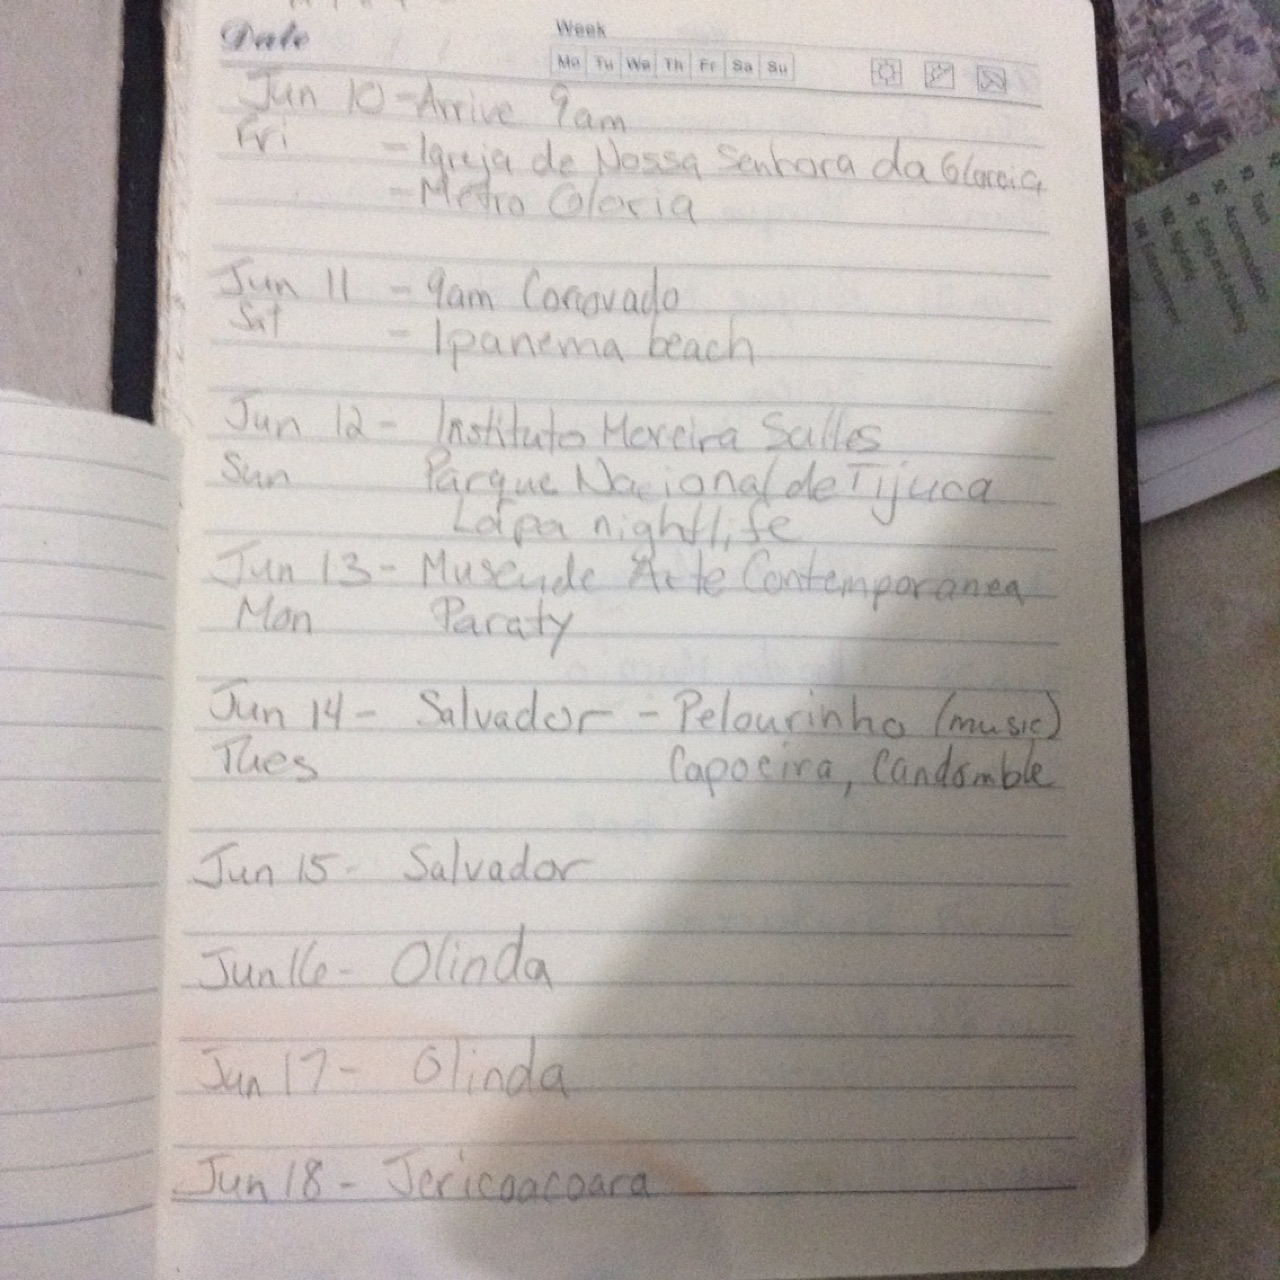 Date
Week
Mo Tu We Th Fr Sa Su
Jun 10 - Arrive 9am
Fri - Igreja de Nossa Senhora da Gloria
- Metro Gloria
Jun 11 - 9am Corcovado
Sat - Ipanema beach
Jun 12 - Instituto Moreira Salles
Sun Parque Nacional de Tijuca
Lapa nightlife
Jun 13 - Museu de Arte Contemporanea
Mon Paraty
Jun 14 - Salvador - Pelourinho (music)
Tues Capoeira, Candomble
Jun 15 - Salvador
Jun 16 - Olinda
Jun 17 - Olinda
Jun 18 - Jericoacoara
Accommodation
Eating and drinking
Nightlife
Entertainment